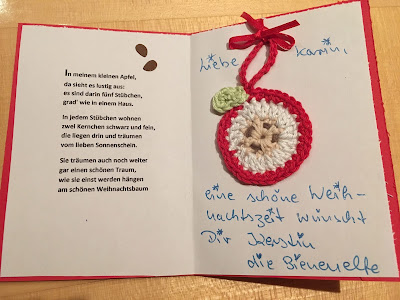 In meinem kleinen Apfel,
da sieht es lustig aus:
es sind darin fünf Stübchen,
grad' wie in einem Haus.
In jedem Stübchen wohnen
zwei Kernchen schwarz und fein,
die liegen drin und träumen
vom lieben Sonnenschein.
Sie träumen auch noch weiter
gar einen schönen Traum,
wie sie einst werden hängen
am schönen Weihnachtsbaum
Liebe Karin,
eine schöne Weih-
nachtszeit wünscht
Dir Kerstin
die Bienenelfe